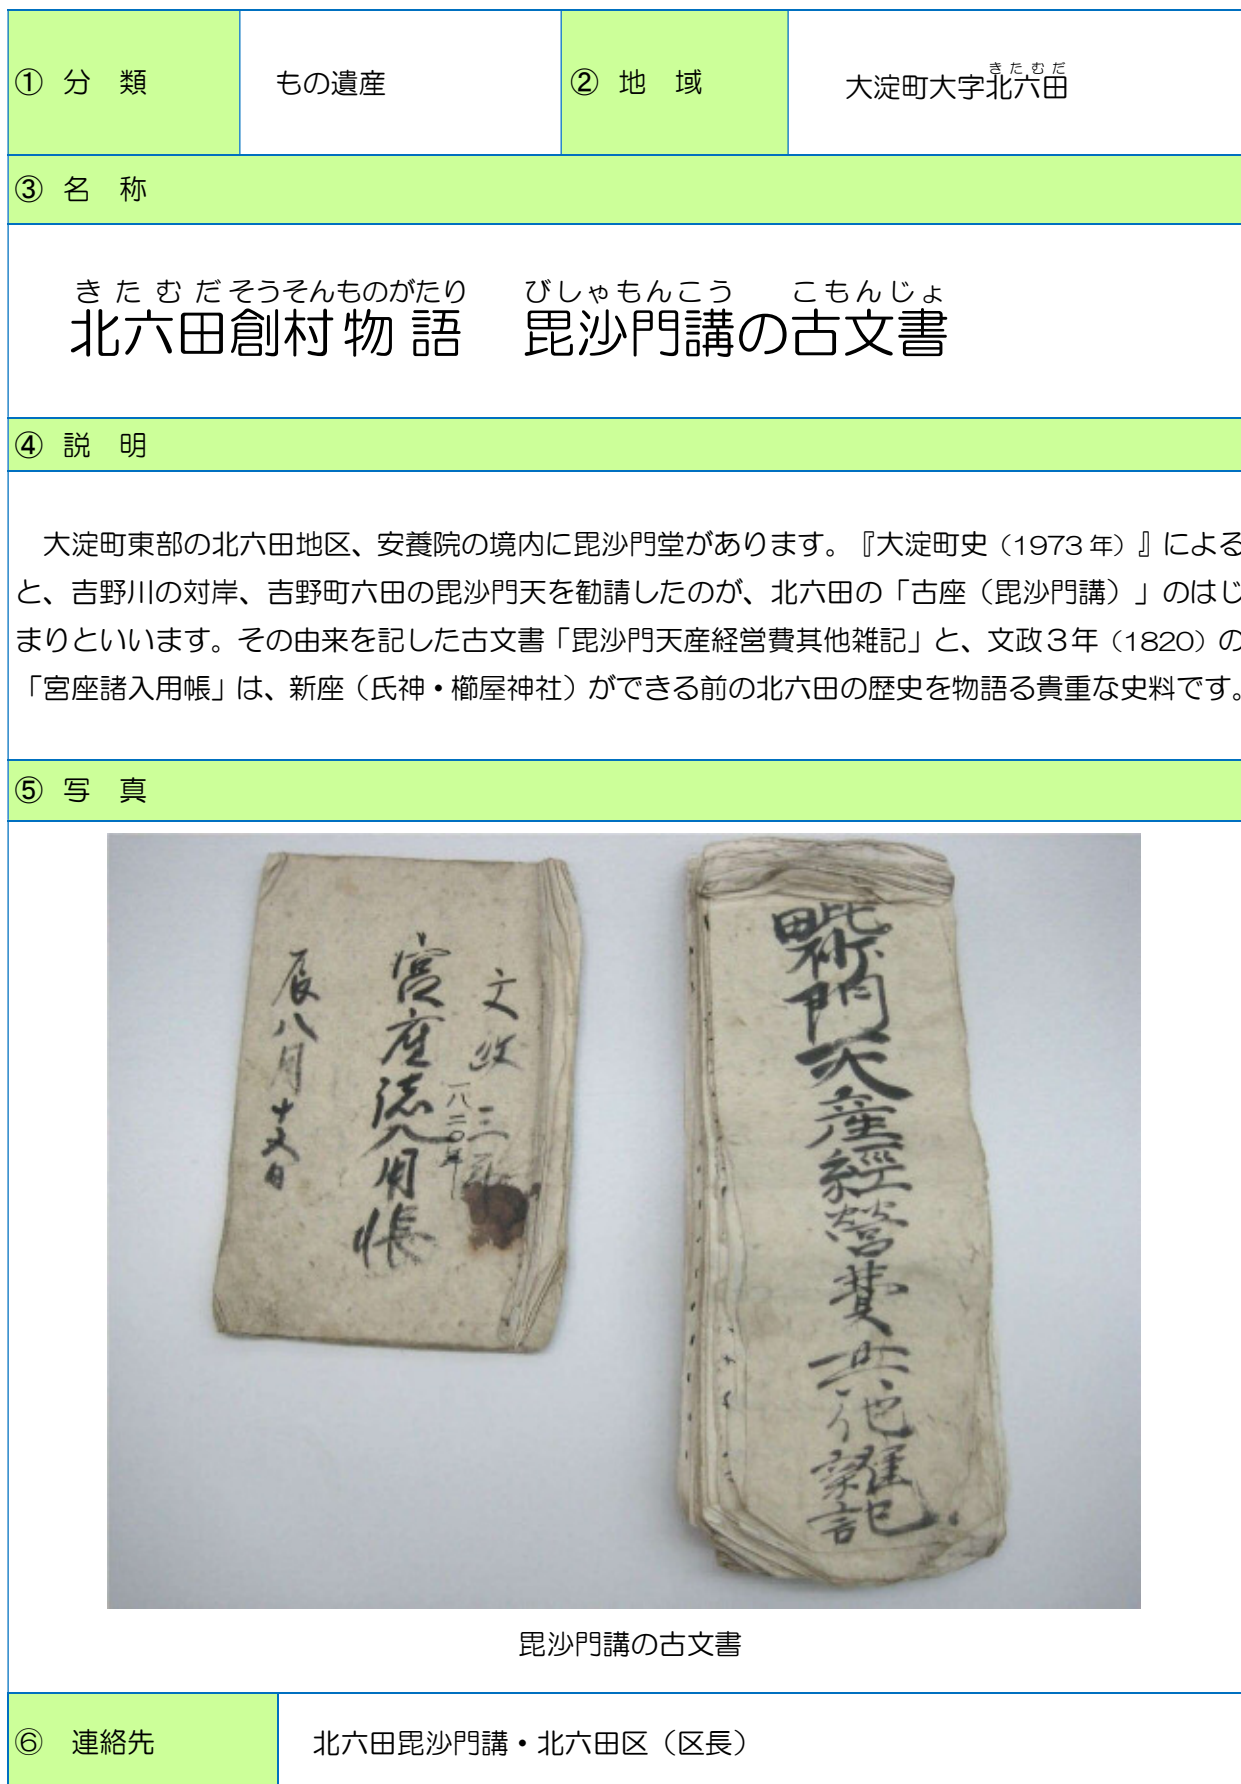 ① 分　類
もの遺産
② 地　域
きたむだ
大淀町大字北六田
③ 名　称
きたむだそうそんものがたり　びしゃもんこう　こもんじょ
北六田創村物語　毘沙門講の古文書
④ 説　明
大淀町東部の北六田地区、安養院の境内に毘沙門堂があります。『大淀町史（1973年）』による
と、吉野川の対岸、吉野町六田の毘沙門天を勧請したのが、北六田の「古座（毘沙門講）」のはじ
まりといいます。その由来を記した古文書「毘沙門天産経営費其他雑記」と、文政３年（1820）の
「宮座諸入用帳」は、新座（氏神・櫛屋神社）ができる前の北六田の歴史を物語る貴重な史料です。
⑤ 写　真
毘沙門天産經營費其他雜記
文政三
一八二〇年
宮座諸入用帳
辰八月十五日
毘沙門講の古文書
⑥ 連絡先
北六田毘沙門講・北六田区（区長）